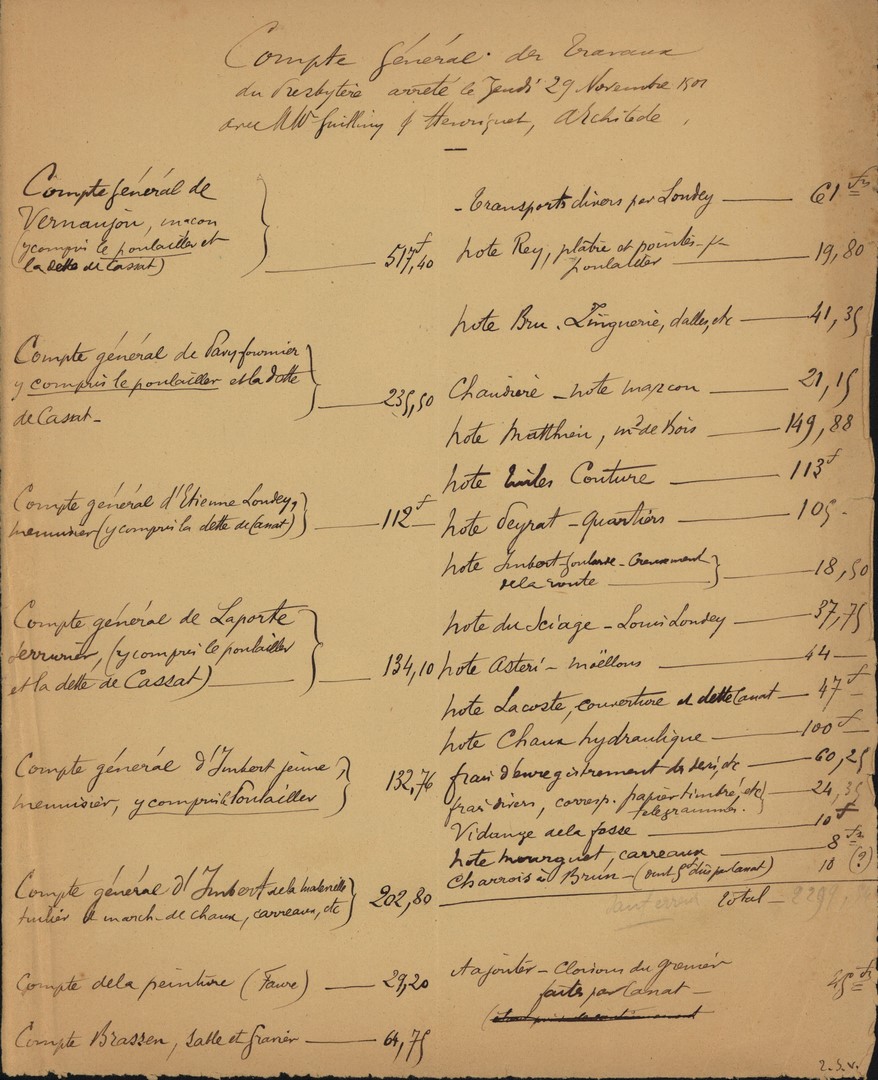 Compte Général des Travaux
du Presbytère arrêté le Jeudi 29 Novembre 1901
avec MMrs Guilliny & Henriquet, architecte,
Compte général de
Vernaujou, maçon
(y compris le poulailler et
la dette de Cassat) 517f,40
Compte général de Pary-fournier
y compris le poulailler et la dette
de Cassat - 235,50
Compte général d'Etienne Loudey,
menuisier (y compris la dette de Cassat) 112f
Compte général de Laporte
serrurier, (y compris le poulailler
et la dette de Cassat) 134,10
Compte général d'Imbert jeune,
menuisier, y compris le Poulailler 132,76
Compte général d'Imbert de la
tuilier & march. de chaux, carreaux, etc 202,80
Compte de la peinture (Faure) 29,20
Compte Brassen, sable et gravier 64,75
- Transports divers par Loudey 61 frs
note Rey, plâtre et pointes pr
poulailler 19,80
note Bru. Zinguerie, dalles, etc 41,35
Chaudière - note mazcou 21,15
note Matthieu, md de Bois 149,88
note Couture 113f
note Peyrat - Quartiers 105 -
note Imbert
de la route 18,50
note du Sciage - Louis Loudey 37,75
note Asteri - moëllons 44
note Lacoste, couverture et dette Cassat 47f
note Chaux hydraulique 100f
frais d'enregistrement de devis, etc 60,25
frais divers, corresp. papier timbré, etc 24,35
télégrammes.
Vidange de la fosse 10f
note mourguet, carreaux 8 frs
Charrois à Brun - (dont dûs par Cassat) 10 (?)
Total - 2297,
A ajouter - Cloisons du grenier
faites par Cassat - frs
2.S.V.